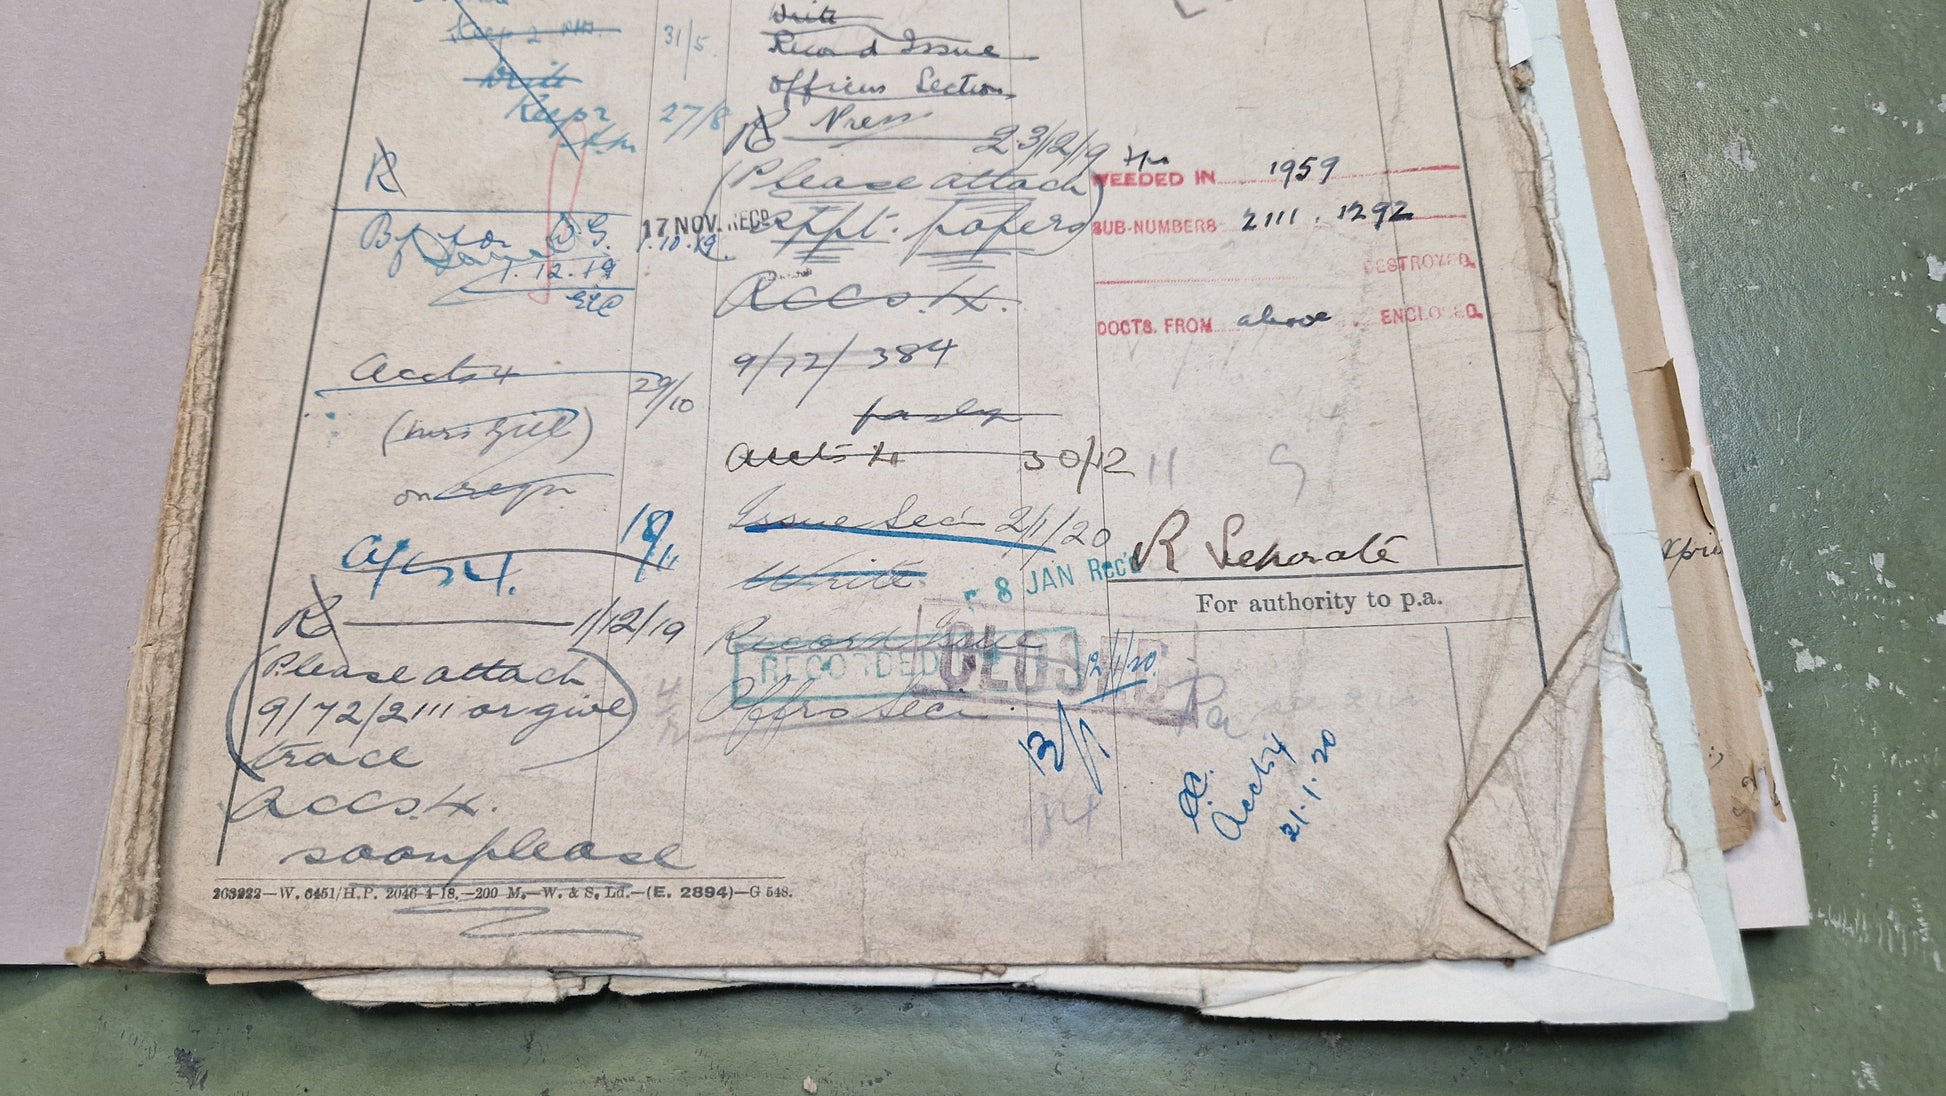 Keep 2 31/5
Write
Keep 2 27/8
R
By for D.G. 1.10.19
1.12.19
17 NOV. RECD.
Accts 4 29/10
(Mrs Gill)
on
A/cs 4. 18/11
R 1/12/19
(Please attach
9/72/2111 or give
trace
Accs. 4.
soon please
Write
Record Issue
Officers Section
R Press 23/12/19
(Please attach
sppt. papers)
Accs. 4.
9/72/384
Accts 4 30/12
Issue Sec. 2/1/20
Write
8 JAN Rec'd
Record Issue
RECORDED
CLOSED
12/1/20.
Offrs Sec. 13/1
14
WEEDED IN 1959
SUB-NUMBERS 2111. 1292
DESTROYED.
DOCTS. FROM above ENCLOSED.
R Separate
For authority to p.a.
Pa
Accts 4
21.1.20
263222—W. 6451/H.P. 2046-4-18.—200 M.—W. & S. Ld.—(E. 2894)—G 548.